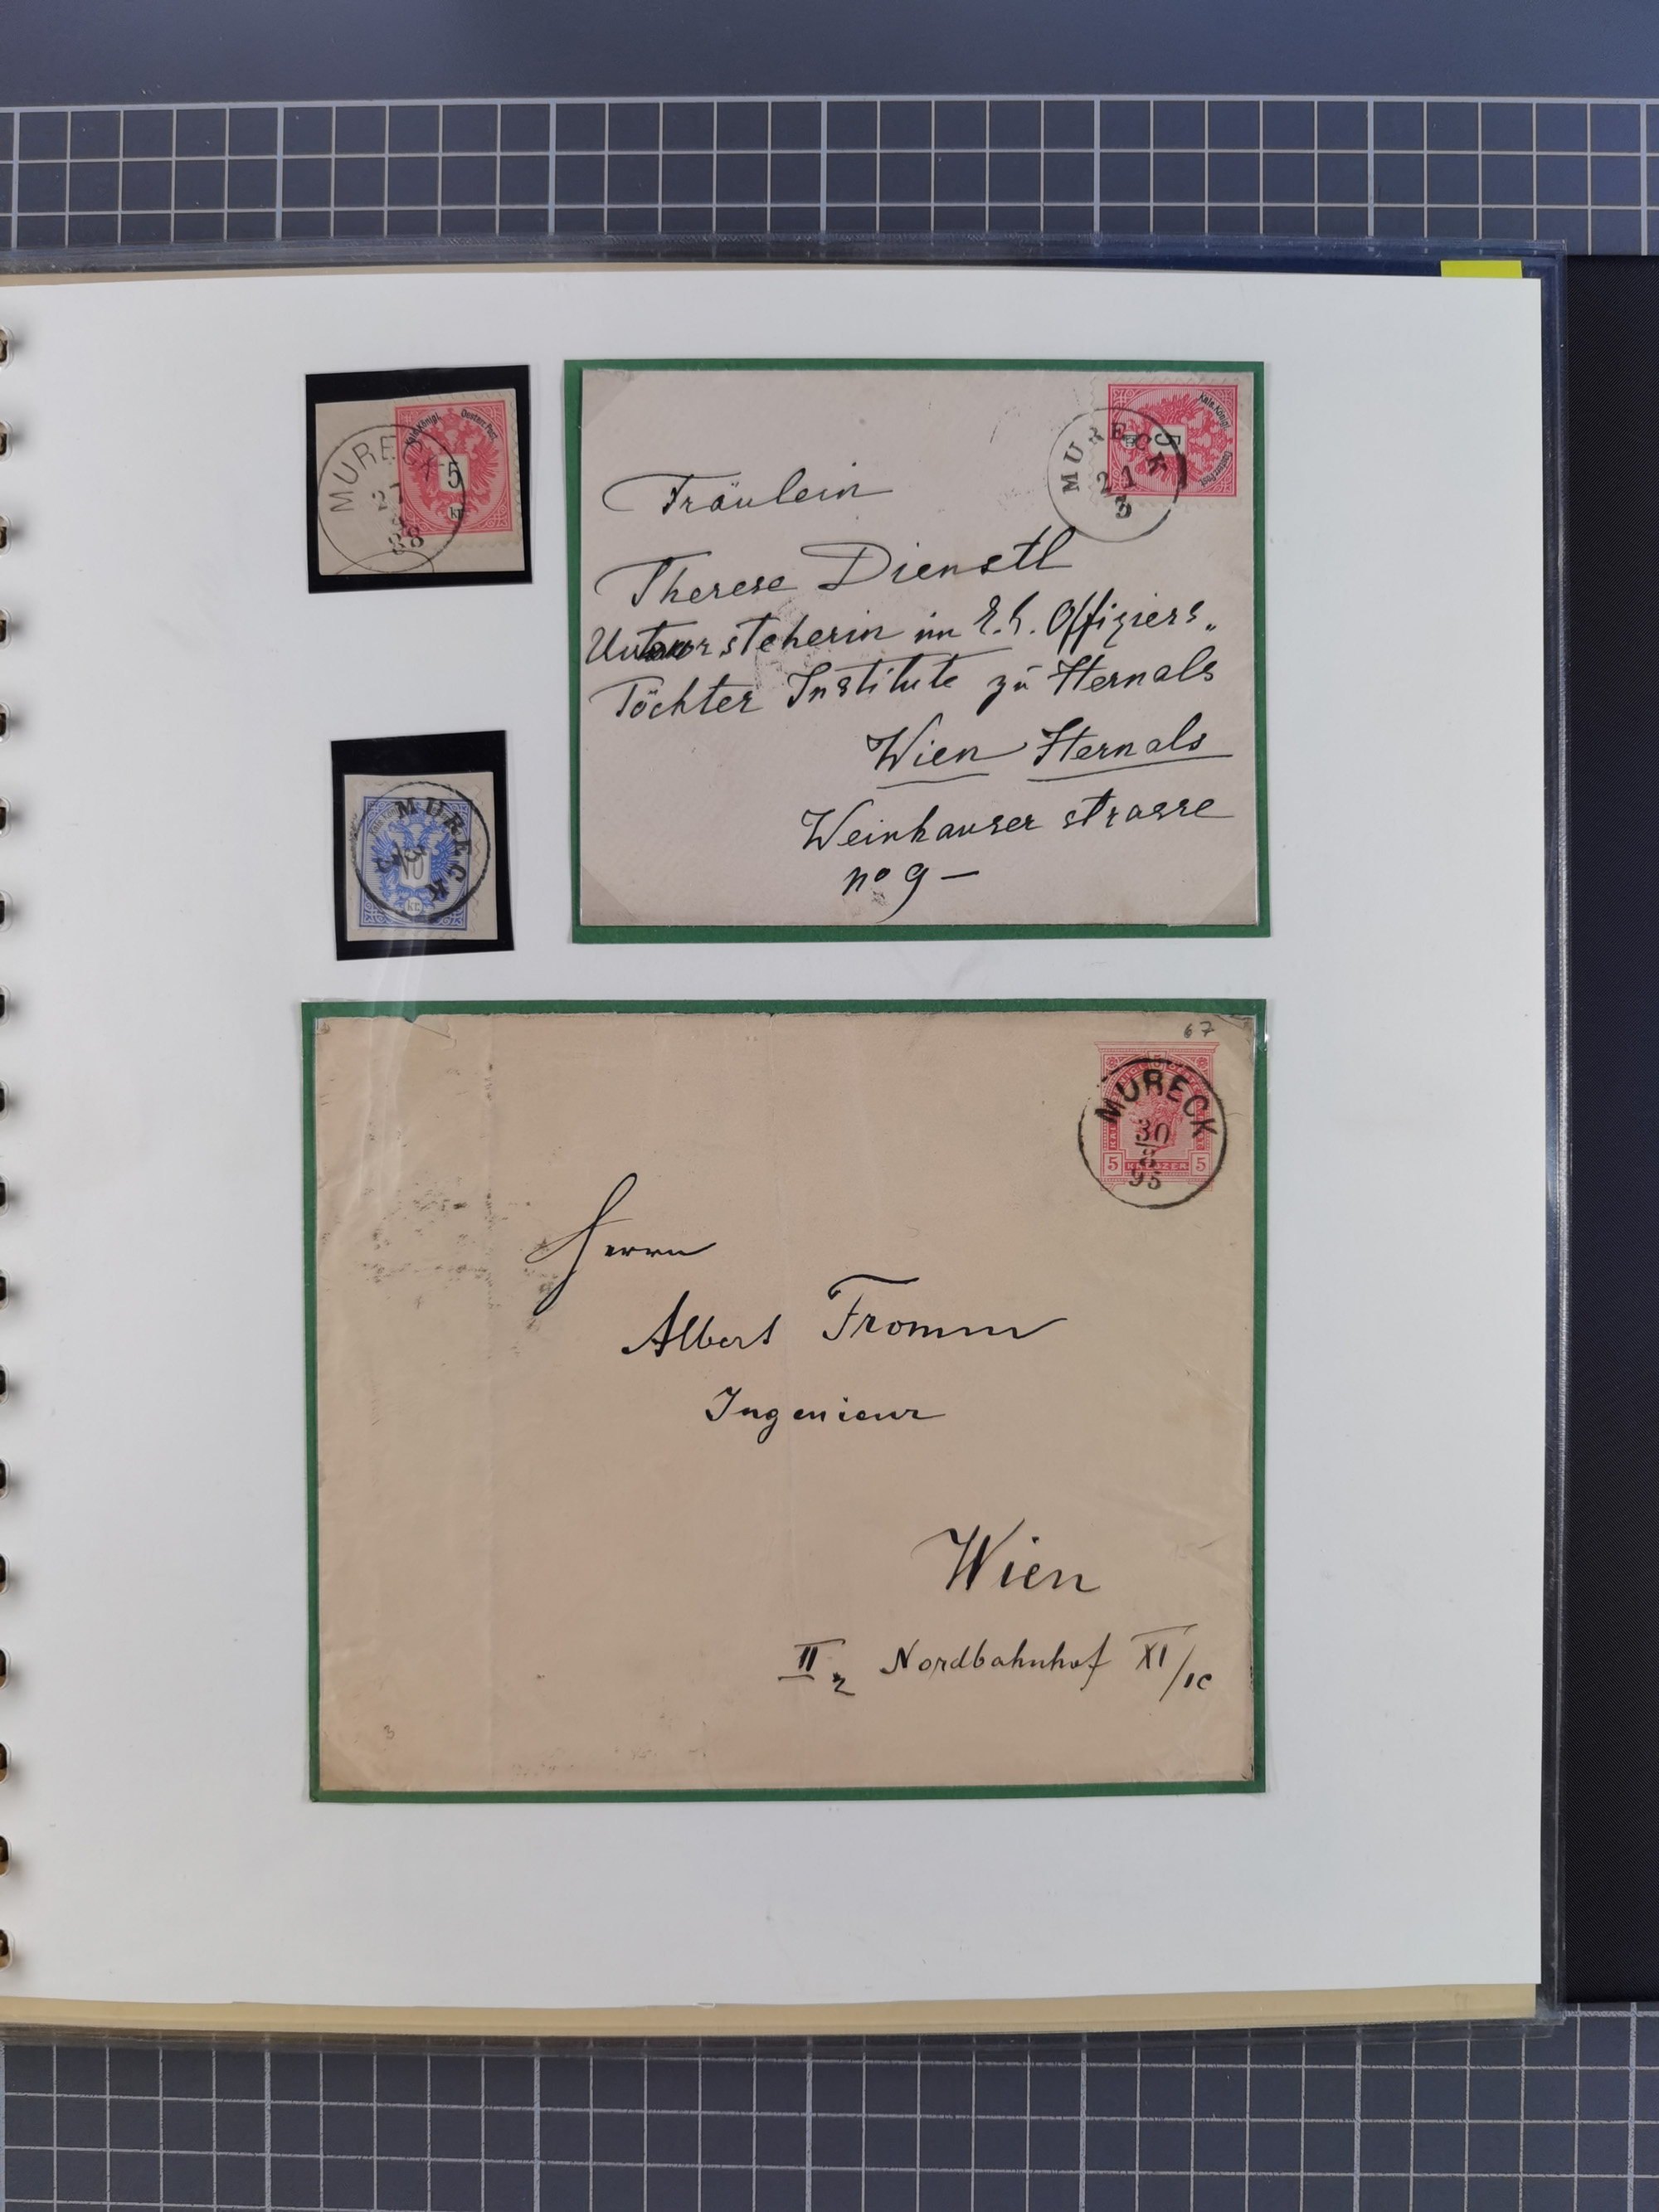 MURECK
88
Kais. Königl. Oesterr. Post.
5
kr.
MURECK
21
3
Kais. Königl. Oesterr. Post.
Fräulein
Therese Dienstl
im k. k. Offiziers„
Töchter Institute zu Hernals
Wien Hernals
Weinhauser strasse
no 9 —
MURECK
10
kr.
67
MURECK
30
8
95
5 KREUZER 5
Herrn
Albert Fromm
Ingenieur
Wien
II 2 Nordbahnhof XI/1c
3